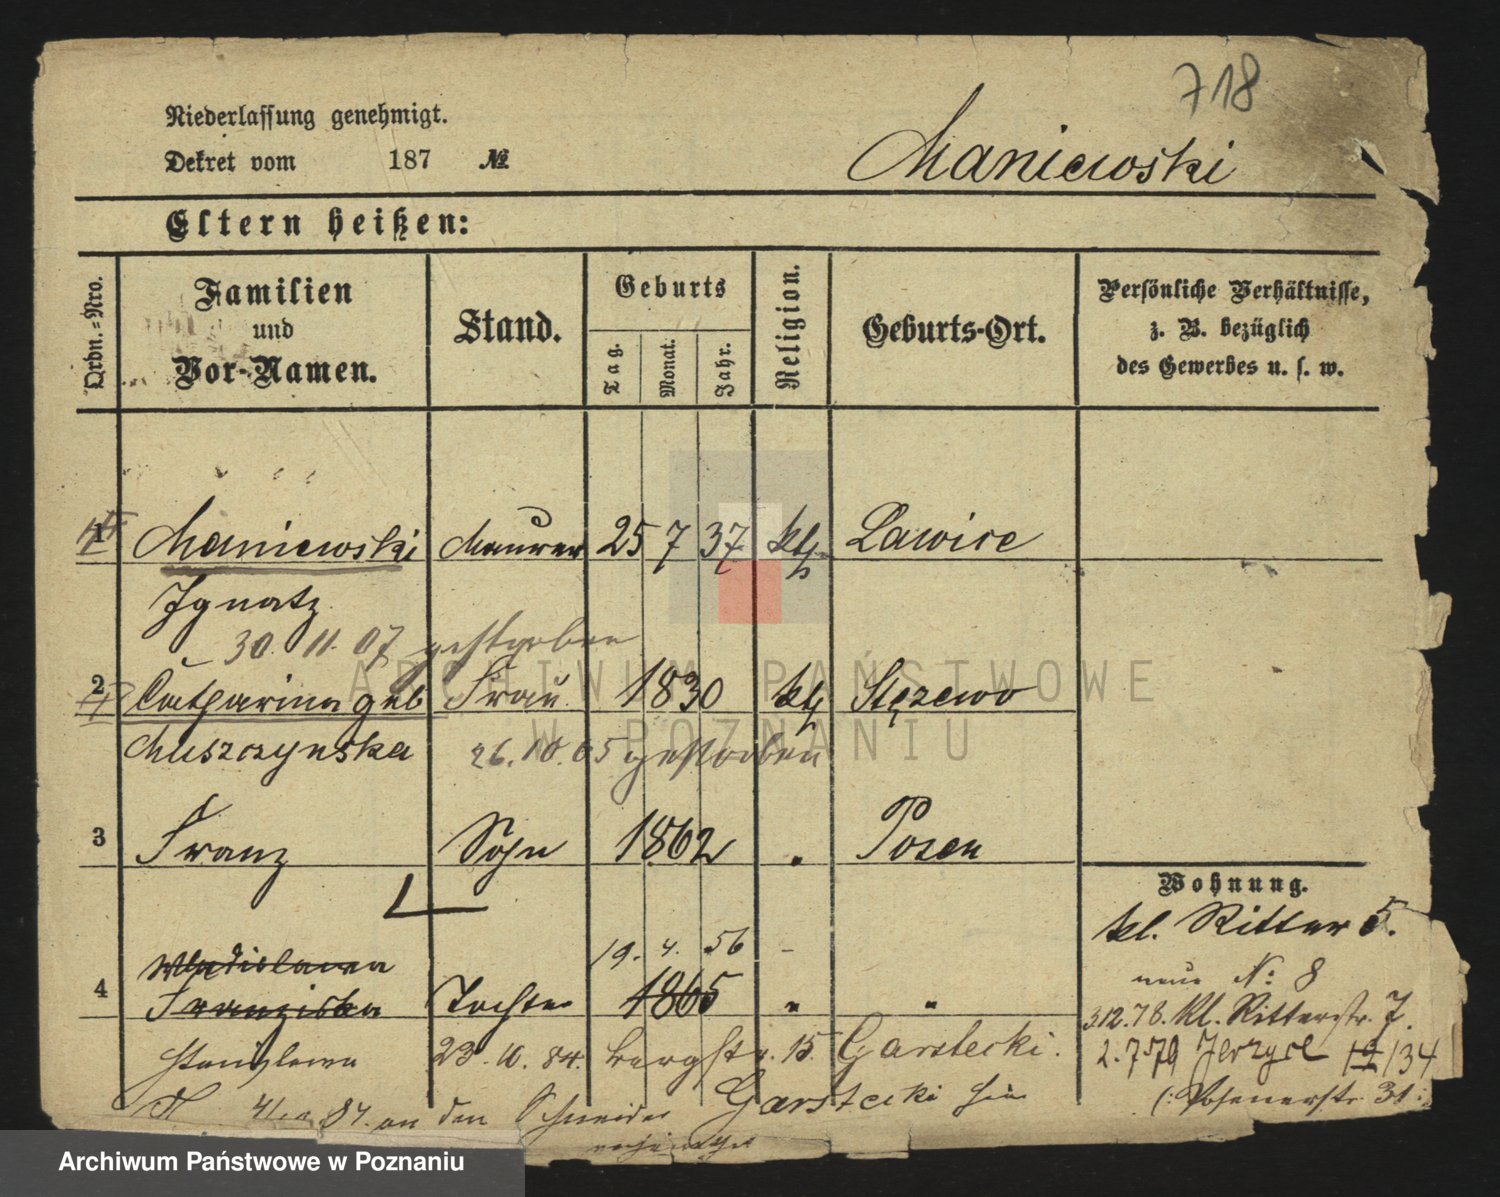 718
Niederlassung genehmigt.
Dekret vom 187 №
Maniewski
Eltern heißen:
Ordn.=Nro.
Familien
und
Vor-Namen.
Stand.
Geburts
Tag.
Monat.
Jahr.
Religion.
Geburts-Ort.
Persönliche Verhältnisse,
z. B. bezüglich
des Gewerbes u. s. w.
1 Maniewski Maurer 25 7 37 kth Lawice
Ignatz
30. 11. 07 gestorben
2 Catharina geb Frau 1830 kth Stęzewo
Muszczynska 26. 10. 05 gestorben
3 Franz Sohn 1862 " Posen
Wohnung.
kl. Ritter 5.
neue No: 8
312.78. Kl. Ritterstr. 7.
2.7 79 Jerzyce 19/134
(: Posenerstr 31 :)
Wladislawa 19. 4. 56 -
4 Franziska Tochter 1865 " "
Stanislawa 23. 10. 84. Bergstr. 15. Garstecki.
84. an den Schneider Garstecki hier
verheirathet
ARCHIWUM PAŃSTWOWE
W POZNANIU
Archiwum Państwowe w Poznaniu